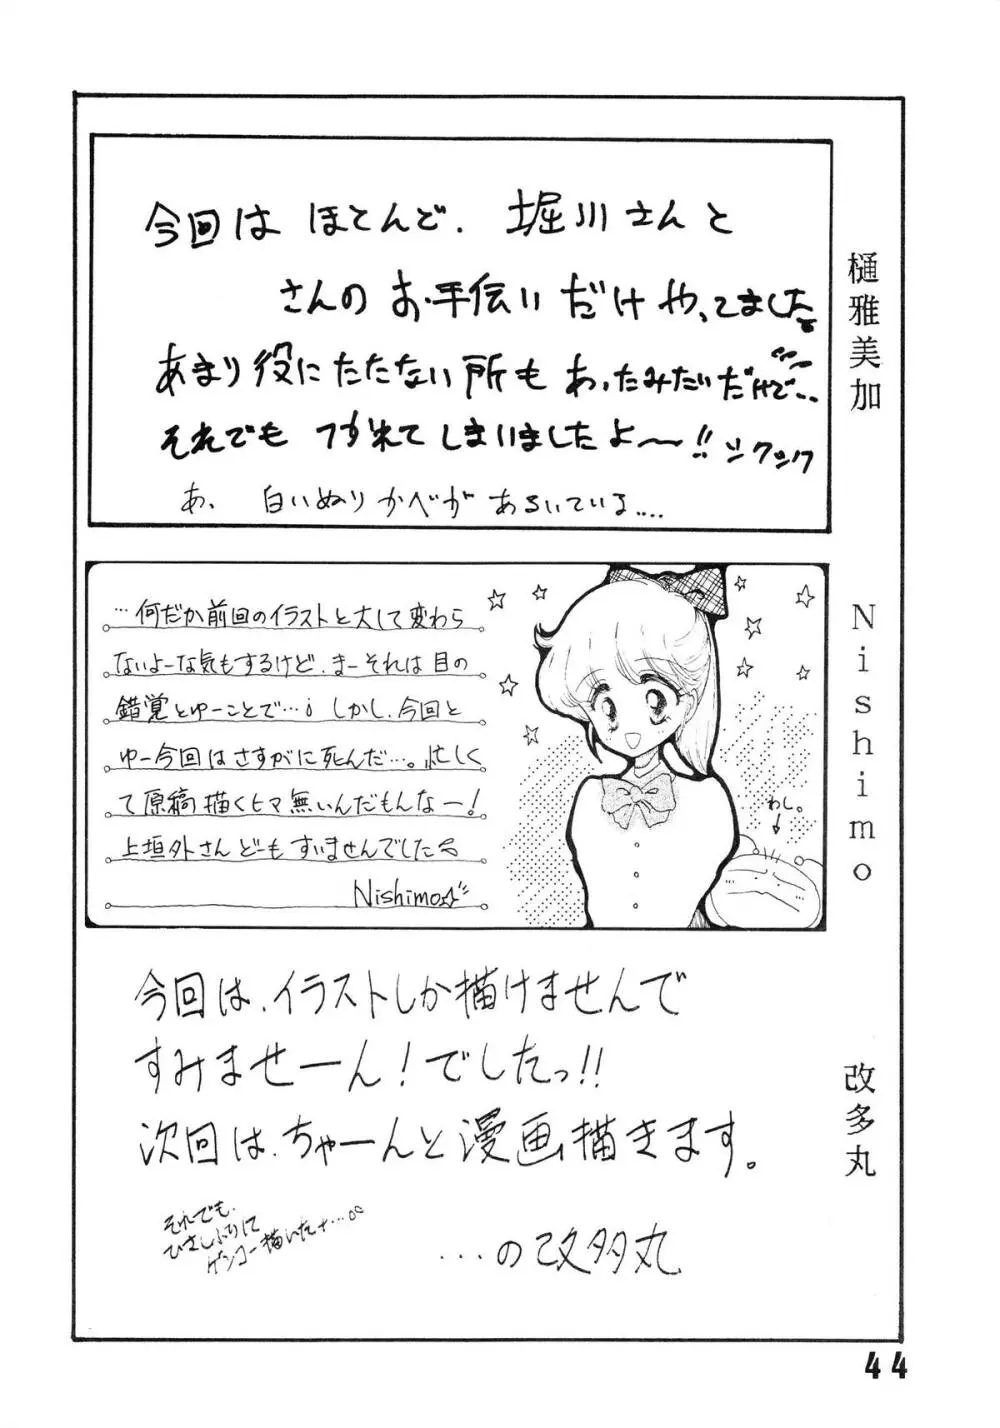 樋雅美加
今回は ほとんど、堀川さんと
さんの お手伝い だけ やってました
あまり役にたたない所も あったみたいだけど…
それでも つかれて しまいましたよ～!!
あ、白いぬりかべが あるいている....
Nishimo
…何だか前回のイラストと大して変わら
ないよーな気もするけど、まーそれは目の
錯覚とゆーことで…。しかし、今回と
ゆー今回はさすがに死んだ…。忙しく
て原稿描くヒマ無いんだもんなー!
上垣外さん どーも すいませんでした
Nishimo☆
わし。
改多丸
今回は、イラストしか描けませんで
すみませーん!でしたっ!!
次回は、ちゃーんと漫画描きます。
それでも、
ひさしぶりに
ゲンコー描いたナ…。。
...の改多丸
44